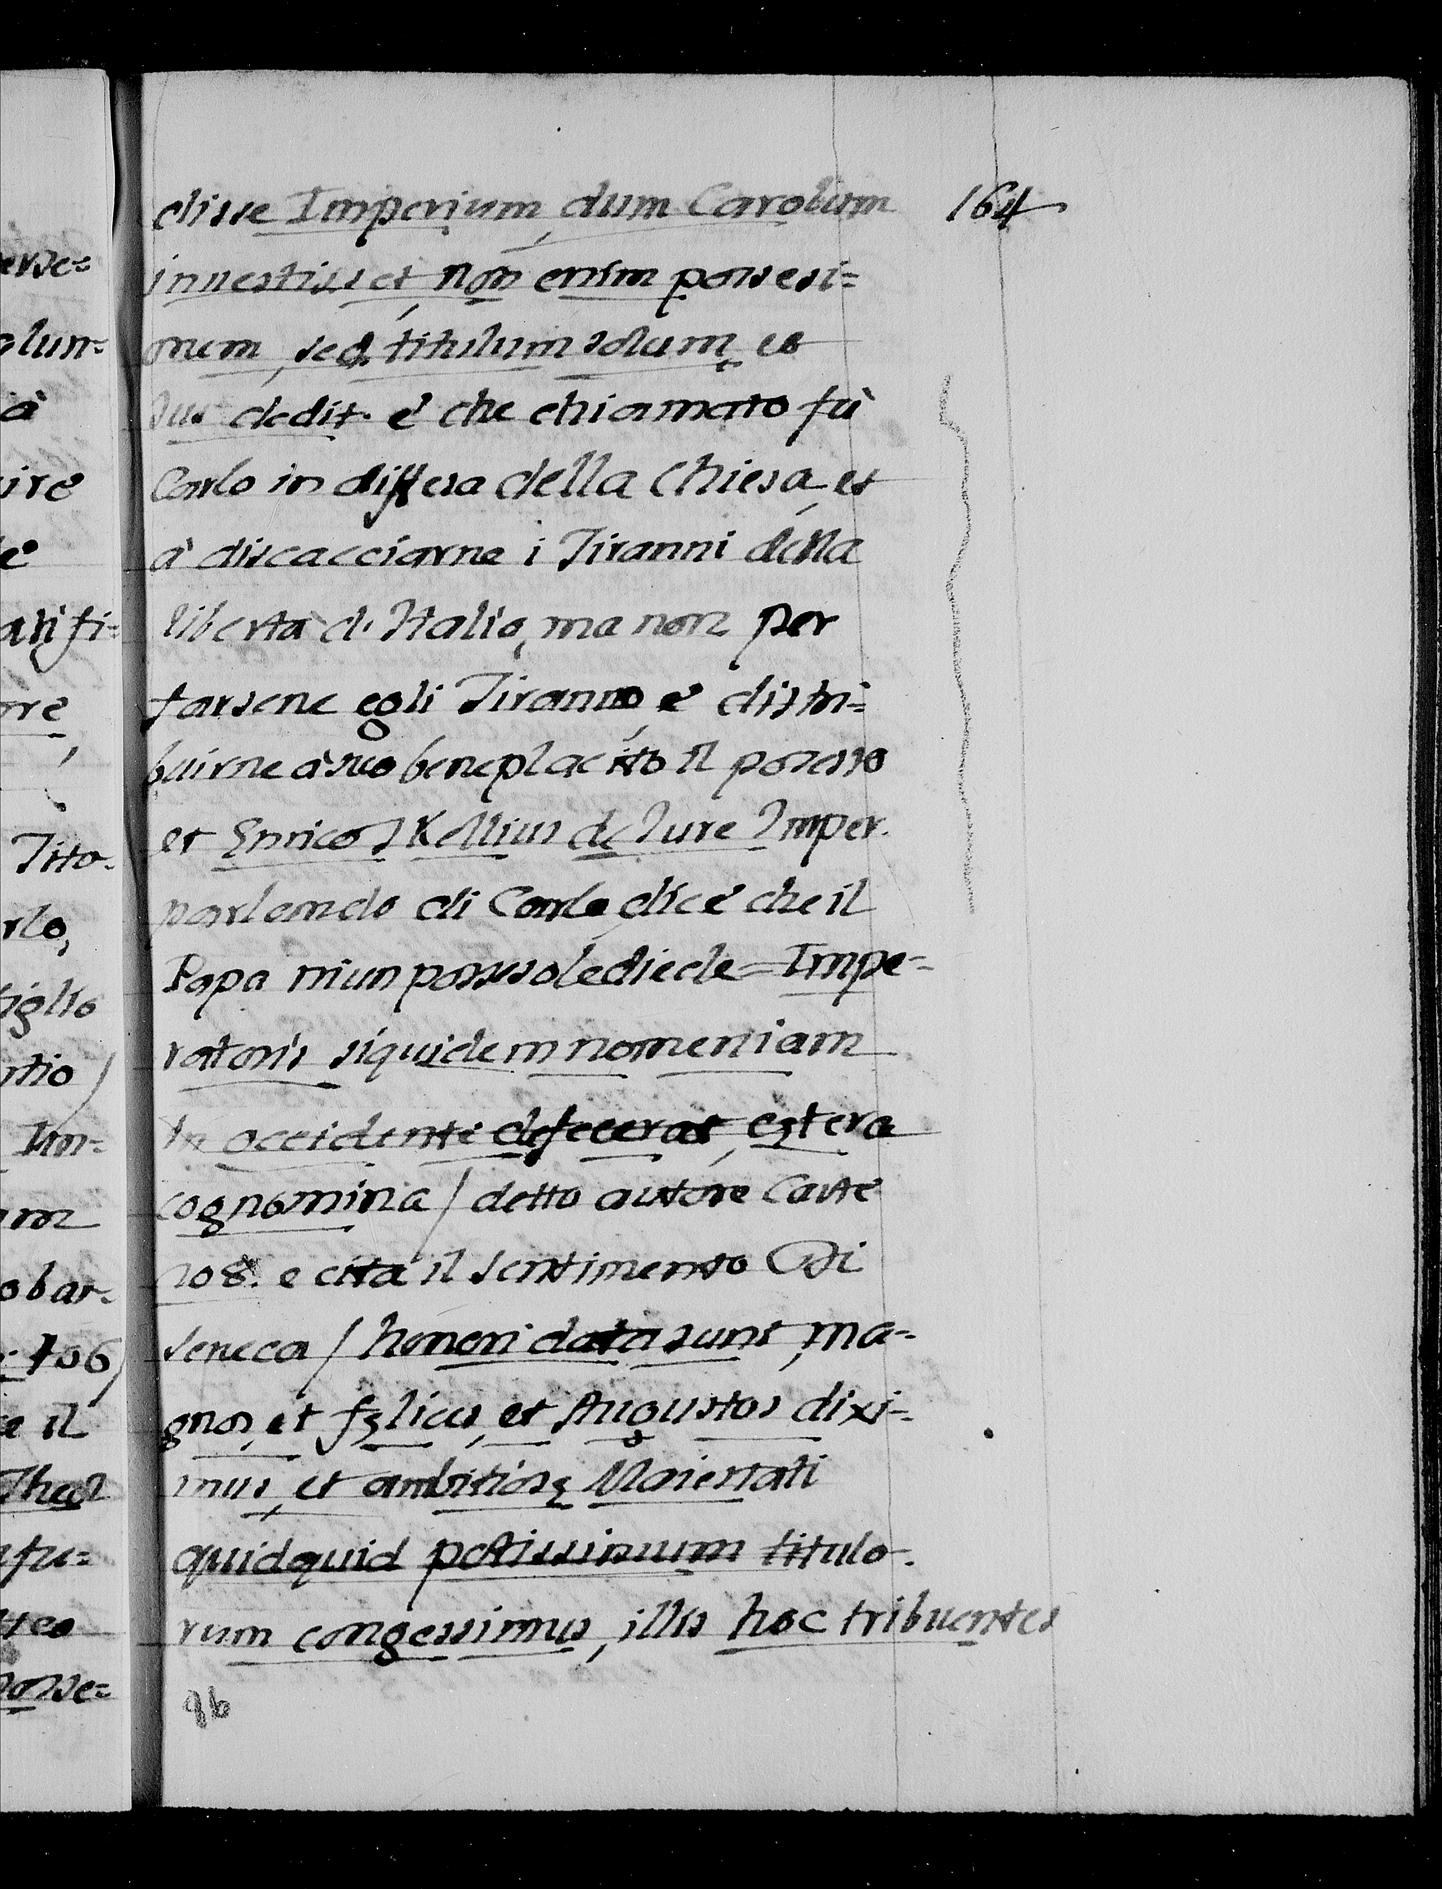 164
disse Imperium, dum Carolum
inuestisset, non enim possesi=
onem, sed titulum solum et
Jus dedit. e che chiamato fù
Carlo in diffesa della Chiesa, et
à discacciarne i Tiranni della
libertà d'Italia, ma non per
farsene egli Tiranno, e distri=
buirne à suo beneplacito il posesso
et Enrico Kellius de Jure Imper.
parlando di Carlo, dice che il
Papa niun possesso le diede = Impe=
ratoris siquidem nomen iam
In occidente defecerat, cętera
cognomina / detto autore Carte
108. e cita il sentimento Di
Seneca / honori data sunt, ma=
gnos, et fęlices, et Augustos dixi=
mus, et ambitiosę Maiestati
quidquid potissimum titulo=
rum congessimus, illis hoc tribuentes
86
erse=
olun=
à
ire
le
atifi=
rre,
Tito=
rlo,
figlio
ntio /
Im=
um
obar=
106 /
e il
ufu=
tteo
posse=